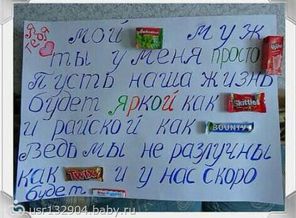 Я
тебя
мой муж
ты у меня просто
Пусть наша жизнь
будет яркой как Skittles
и райской как BOUNTY
Ведь мы не разлучны
как Twix и у нас скоро
будет
usr132904.baby.ru